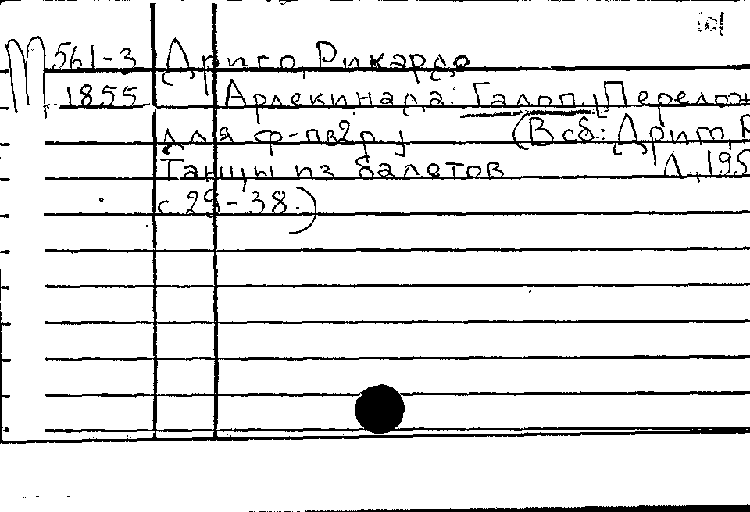 М 561-3 Дриго, Рикардо
1855 Арлекинада: Галоп. [Перелож
для ф-п в 2 р.] (В сб.: Дриго, Р
Танцы из балетов Л., 195
с. 29-38.)